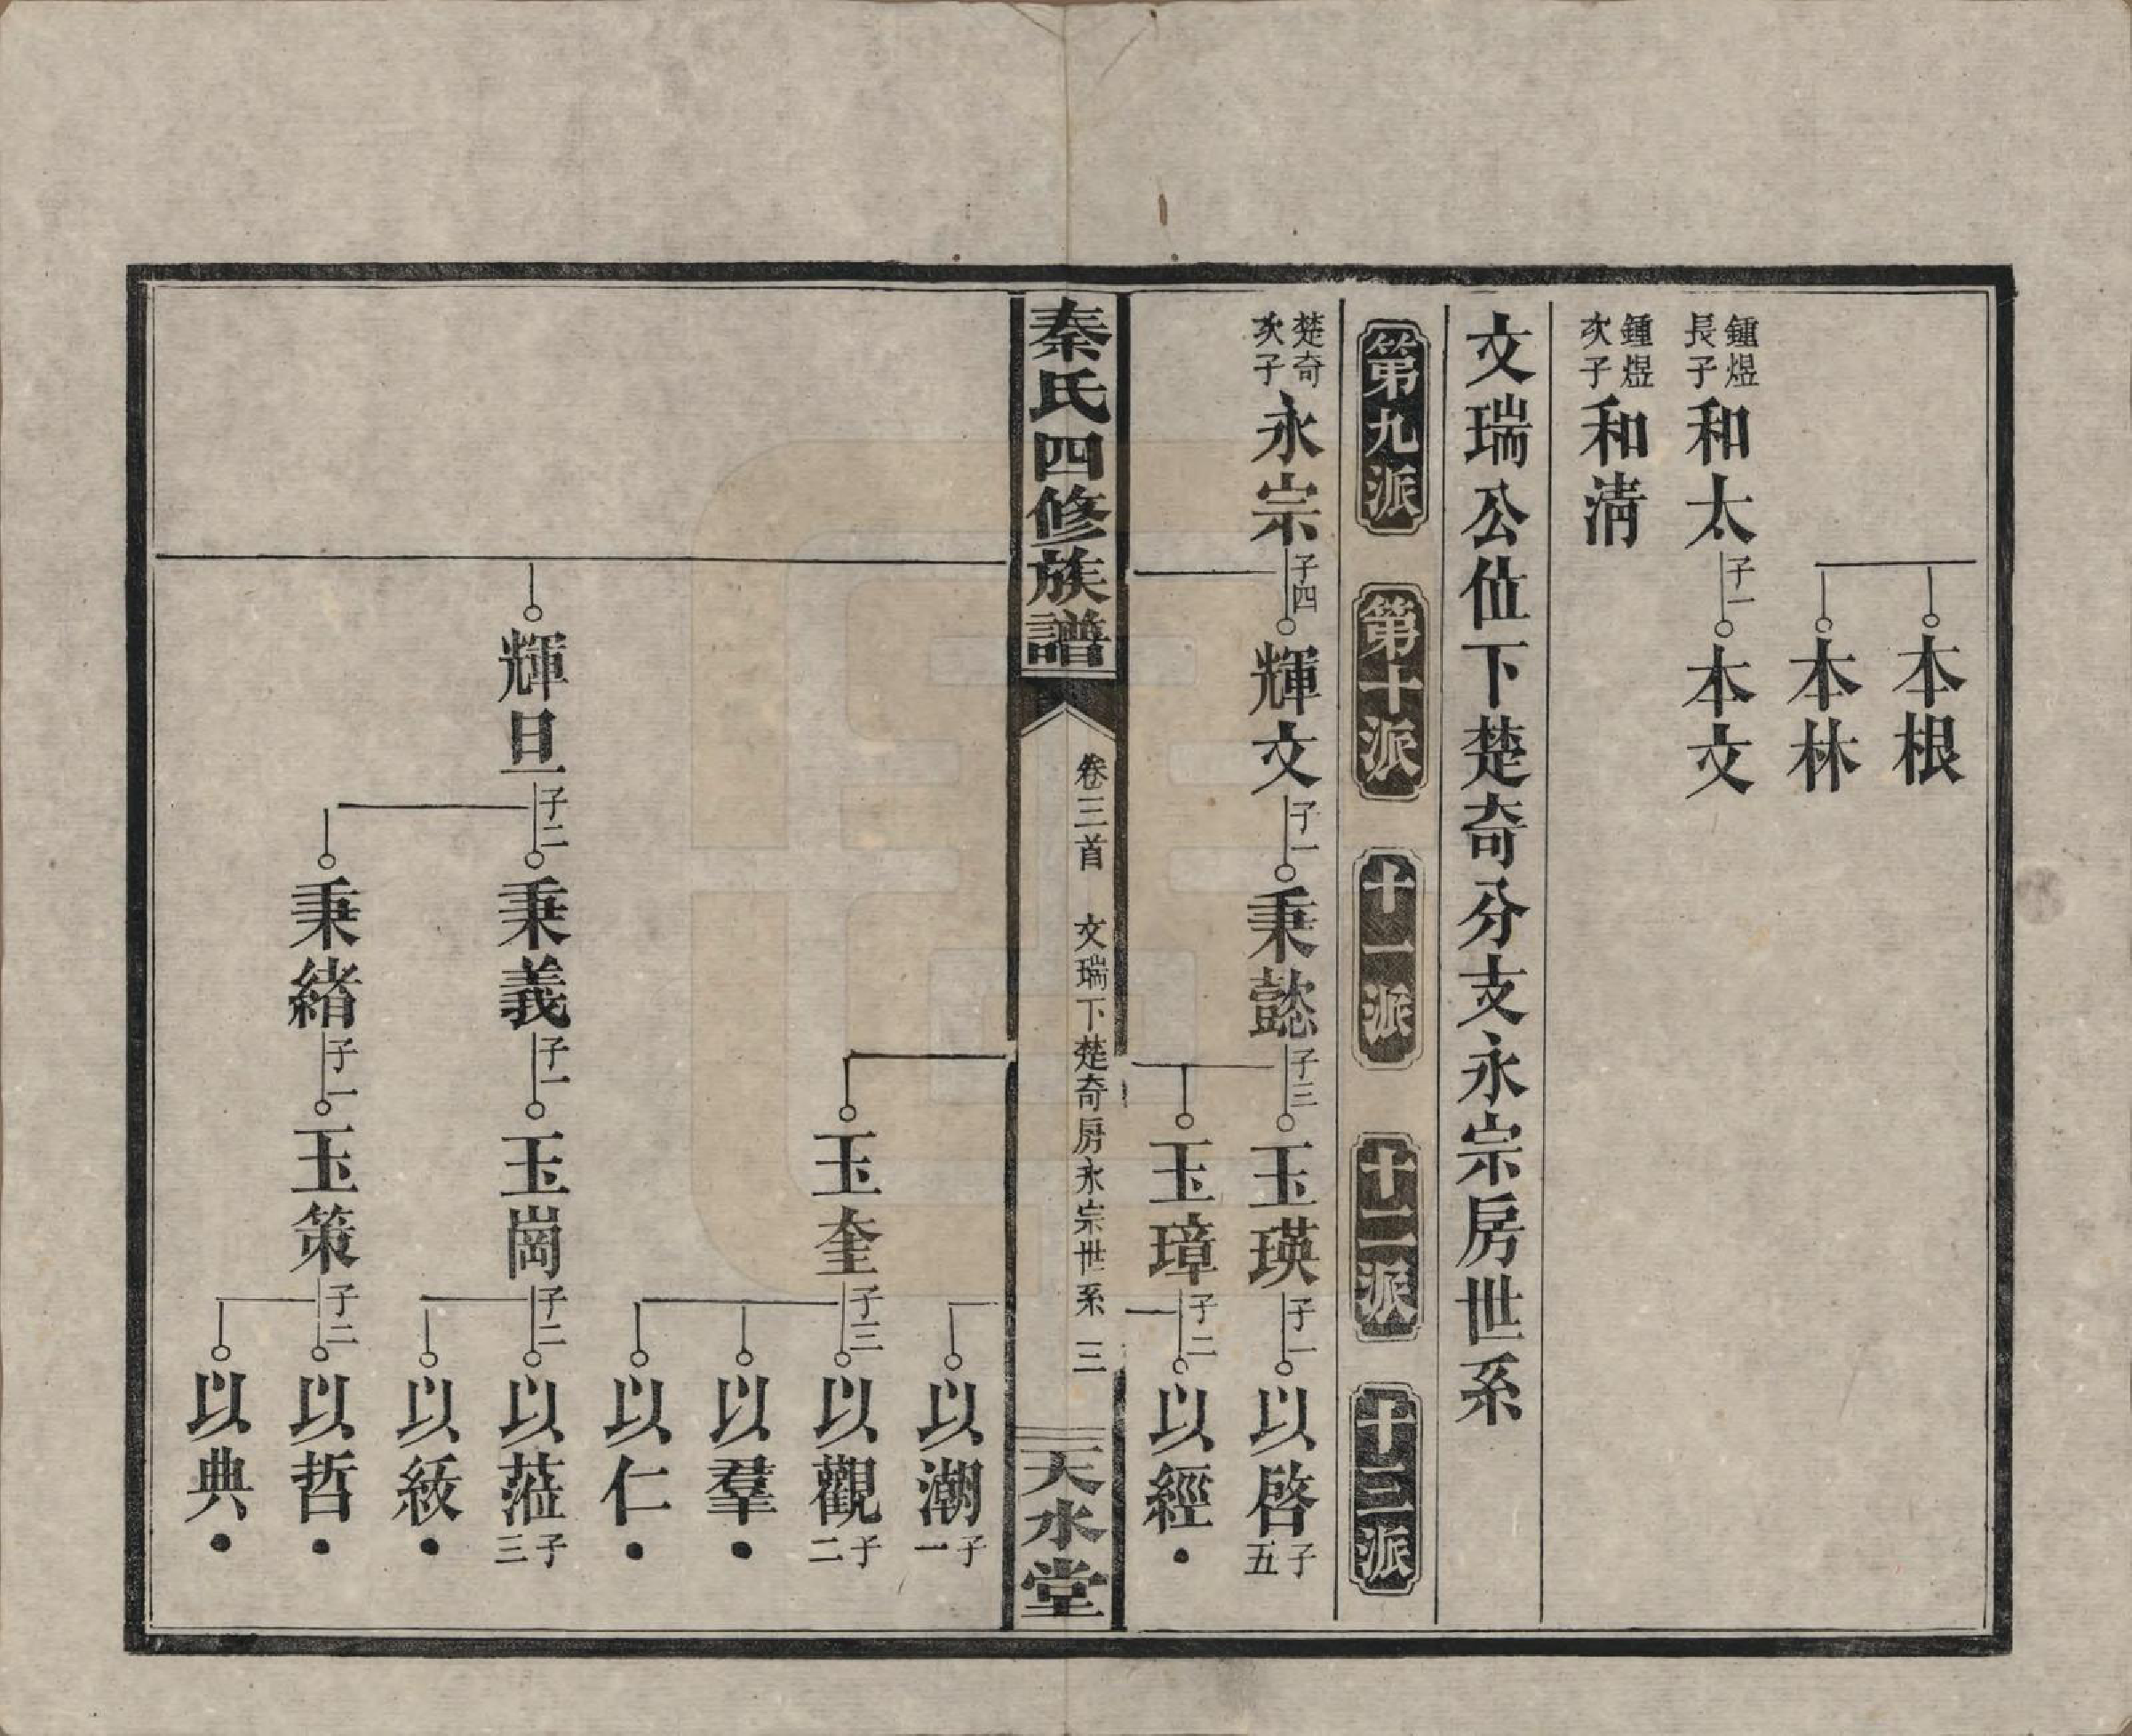 本根
本林
鍾煜長子 和太 子一 本文
鍾煜次子 和清
文瑞公位下楚奇分支永宗房世系
第九派 第十派 十一派 十二派 十三派
楚奇次子 永宗 子四 輝文 子一 秉懿 子三 玉瑛 子一 以啓 子五
玉璋 子二 以經
秦氏四修族譜 卷三首 文瑞下楚奇房永宗世系 三 天水堂
以潮 子一
玉奎 子三 以觀 子二
以羣
以仁
輝旦 子二 秉義 子一 玉崗 子二 以蒞 子三
以紱
秉緒 子一 玉策 子二 以哲
以典